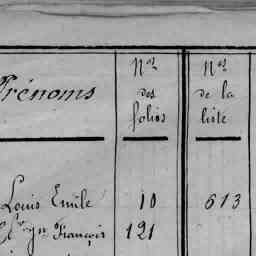 Prénoms
Nos des folios
Nos de la liste
Louis Emile 10 613
François 121